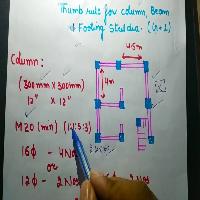 Thumb rule for column, Beam
& Footing Steel dia. (G+1)
4.5m
Column:
4m
(300mm x 300mm)
12" x 12"
M20 (min) (1:1.5:3)
16Φ - 4 Nos
12Φ - 2 Nos